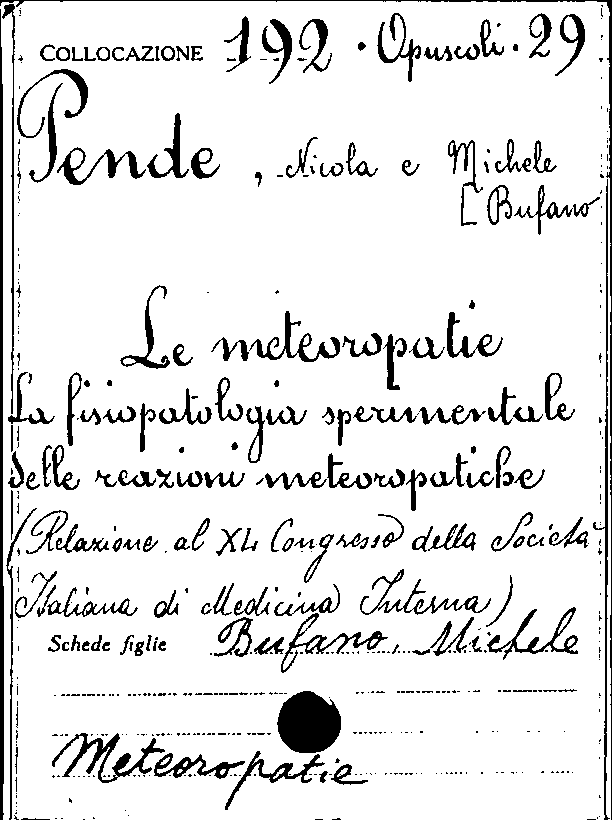 COLLOCAZIONE 192 · Opuscoli · 29
Pende, Nicola e Michele
[Bufano
Le meteoropatie
La fisiopatologia sperimentale
delle reazioni meteoropatiche
(Relazione al XL Congresso della Società
Italiana di Medicina Interna)
Schede figlie Bufano, Michele
Meteoropatie